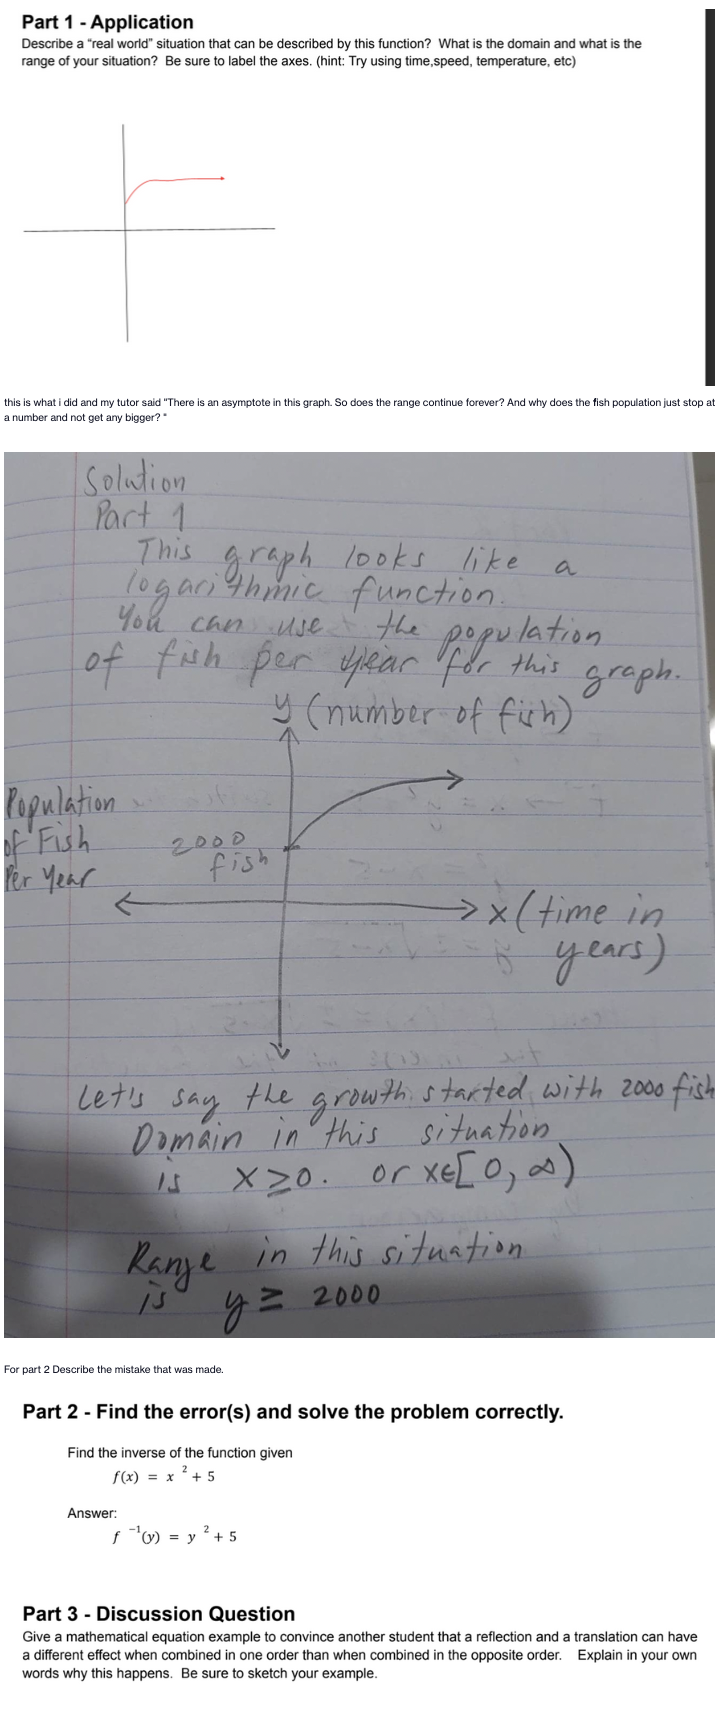 Part 1 - Application
Describe a “real world” situation that can be described by this function?  What is the domain and what is the
range of your situation?  Be sure to label the axes. (hint: Try using time,speed, temperature, etc)
this is what i did and my tutor said "There is an asymptote in this graph. So does the range continue forever? And why does the fish population just stop at
a number and not get any bigger? "
Solution
Part 1
This graph looks like a
logarithmic function.
You can use the population
of fish per year for this graph.
y (number of fish)
Population
of Fish
Per Year
2000
fish
x (time in
years)
Let's say the growth started with 2000 fish
Domain in this situation
is x≥0. or x∈[0, ∞)
Range in this situation
is y ≥ 2000
For part 2 Describe the mistake that was made.
Part 2 - Find the error(s) and solve the problem correctly.
Find the inverse of the function given
f(x) = x² + 5
Answer:
f⁻¹(y) = y² + 5
Part 3 - Discussion Question
Give a mathematical equation example to convince another student that a reflection and a translation can have
a different effect when combined in one order than when combined in the opposite order.   Explain in your own
words why this happens.  Be sure to sketch your example.